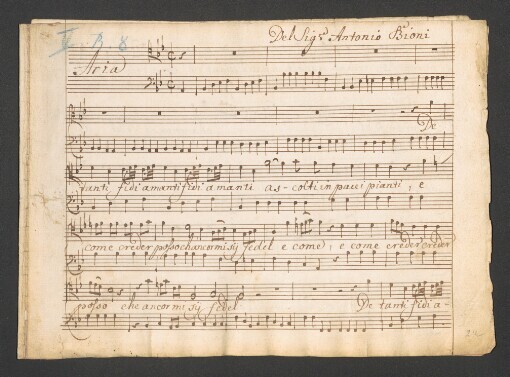 V. B. 8
Del Sig.r Antonio Bioni
Aria
De
tanti fidi amanti fidi amanti as-colti in pace i pianti, e
come creder posso ch'ancor mi sij fedel e come, e come creder creder
posso che ancor mi sij fedel De tanti fidi a-